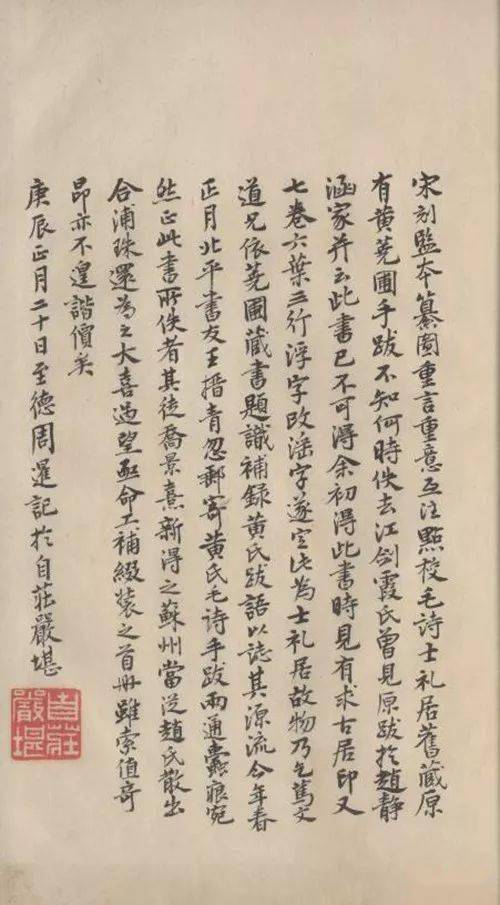 宋刻監本纂圖重言重意互注點校毛詩士礼居舊藏原
有黄蕘圃手跋不知何時佚去江劍霞氏曾見原跋扵趙静
涵家并云此書已不可得余初得此書時見有求古居印又
七卷六葉三行浮字改滛字遂定此為士礼居故物乃乞篤文
道兄依蕘圃藏書題識補録黄氏跋語以誌其源流今年春
正月北平書友王搢青忽郵寄黄氏毛詩手跋兩通蠹痕宛
然正此書所佚者其徒喬景熹新得之蘇州當從趙氏散出
合浦珠還為之大喜過望亟命工補綴裝之首冊雖索值奇
昂亦不遑諧價矣
庚辰正月二十日至德周暹記扵自莊嚴堪
自莊嚴堪